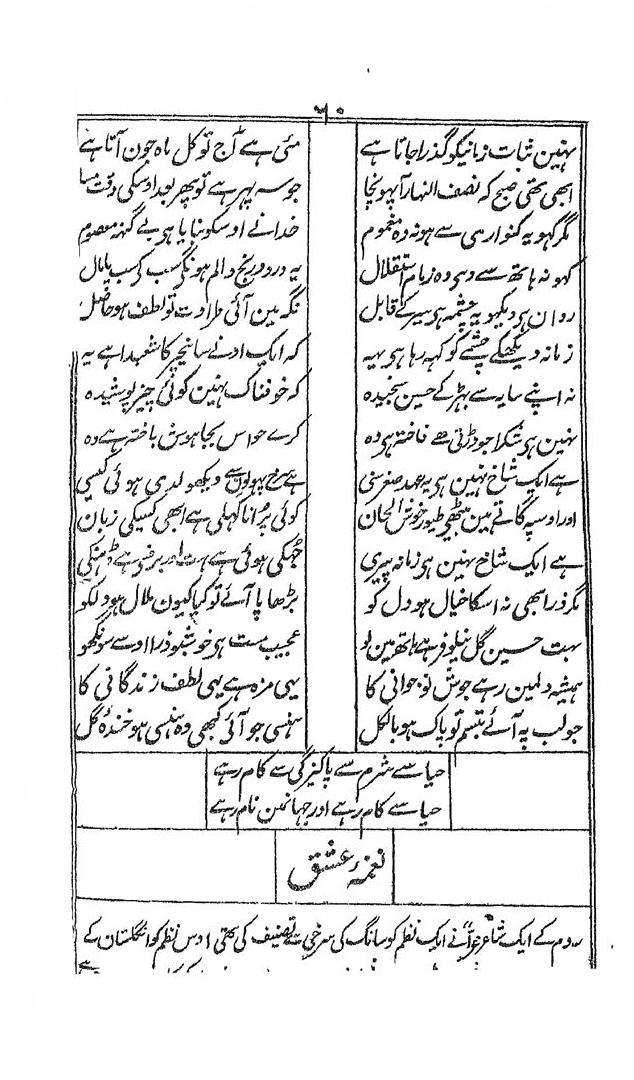 ٦٠
نہین ثبات زمانیکو گذرا جاتا ہے مئی ہے آج تو کل ماہ جون آتا ہے
ابھی تھی صبح کہ نصف النہار آپہونچا جو سہ پہر ہے تو پھر بعد اوسکی وقت مسا
مگر کہو یہ کنواری سے ہو نہ وہ مغموم خدا نے اوسکو بنایا ہی بے گنہ معصوم
کہو نہ ہاتھ سے دی وہ زمام استقلال یہ درد و رنج و الم ہونگی سب کی سب پامال
روان ہی دیکھو یہ چشمہ ہی سیر کے قابل نگہ مین آئی طراوت تو لطف ہو حاصل
زمانہ دیکھکے چشمے کو کہہ رہا ہی یہہ کہ ایک ادنے سا نیچر کا شعبدا ہے یہ
نہ اپنے سایہ سے بھڑکے حسین سنجیدہ کہ خوفناک نہین کوئی چیز پوشیدہ
نہین ہی شکرا جو ڈرتی ہے فاختہ ہی وہ کرے حواس بجا ہوش باختہ ہے وہ
ہے ایک شاخ نہین ہی یہ عہد صغر سنی ہے سرخ پہولون سے دیکھو لدی ہوئی کیسی
اور اوسپہ گاتے ہین بیٹھی طیور خوش الحان کوئی پرانا کہلی ہے ابھی کسیکی زبان
ہے ایک شاخ نہین ہی زمانہ پیری جھکی ہوئی ہے بہت اور برف سے ڈھنکی
مگر ذرا بھی نہ اسکا خیال ہو دل کو بڑھاپا آئے تو کیا کیون ملال ہو دلکو
بہت حسین گل نیلوفر ہے ہاتھ مین لو عجیب مست ہی خوشبو ذرا اوسے سونگھو
ہمیشہ دلمین رہے جوش نوجوانی کا یہی مزہ ہے یہی لطف زندگانی کا
جو لب پہ آئے تبسم تو پاک ہو بالکل ہنسی جو آئی کبھی وہ ہنسی ہو خندۂ گل
حیا سے شرم سے پاکیزگی سے کام رہے
حیا سے کام رہے اور جہانمین نام رہے
نغمۂ عشق
روم کے ایک شاعر غرا نے ایک نظم کو سانگ کی سرخی سے تصنیف کی تھی اوس نظم کو انگلستان کے